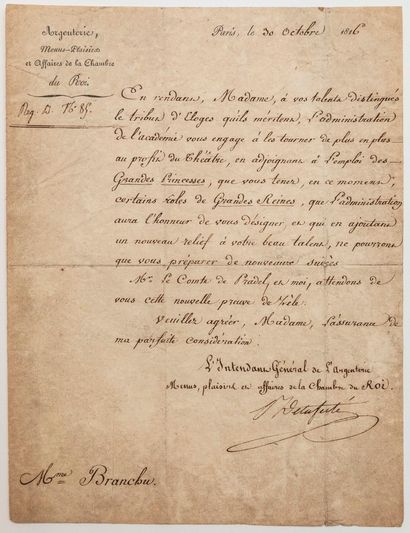 Argenterie,
Menus-Plaisirs
et Affaires de la Chambre
du Roi.
Paris, le 30 Octobre 1816
Reg. D. No. 85.
En rendant, Madame, à vos talents distingués
le tribut d'Eloges qu'ils méritent, l'administration
de l'académie vous engage à les tourner de plus en plus
au profit du Théâtre, en adjoignant à l'emploi des
Grandes Princesses, que vous tenez, en ce moment,
certains rôles de Grandes Reines, que l'administration
aura l'honneur de vous désigner, et qui en ajoutant
un nouveau relief à votre beau talent, ne pourront
que vous préparer de nouveaux succès
Mr. le Comte de Pradel, et moi, attendons de
vous cette nouvelle preuve de zèle.
Veuillez agréer, Madame, l'assurance de
ma parfaite considération.
L'Intendant Général de l'Argenterie
Menus, plaisirs et affaires de la Chambre du Roi.
Mme Branchu.